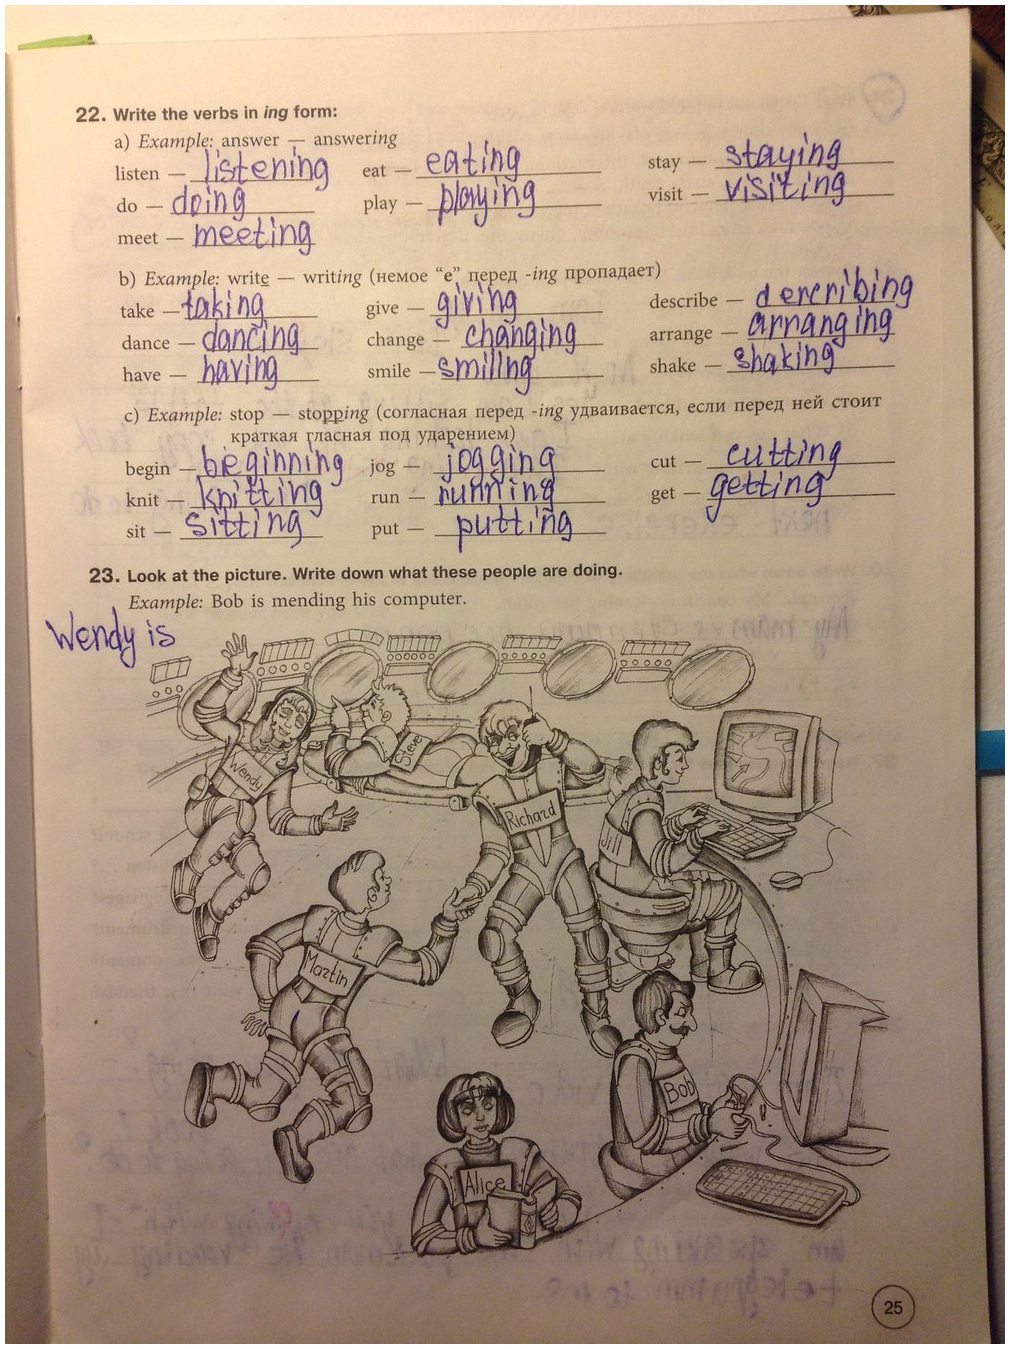 22. Write the verbs in ing form:
a) Example: answer — answering
listen — listening eat — eating stay — staying
do — doing play — playing visit — visiting
meet — meeting
b) Example: write — writing (немое “е” перед -ing пропадает)
take — taking give — giving describe — dercribing
dance — dancing change — changing arrange — arranging
have — having smile — smiling shake — shaking
c) Example: stop — stopping (согласная перед -ing удваивается, если перед ней стоит
краткая гласная под ударением)
begin — beginning jog — jogging cut — cutting
knit — knitting run — running get — getting
sit — sitting put — putting
23. Look at the picture. Write down what these people are doing.
Example: Bob is mending his computer.
Wendy is
Steve
Wendy
Richard
Jill
Martin
Bob
Alice
25